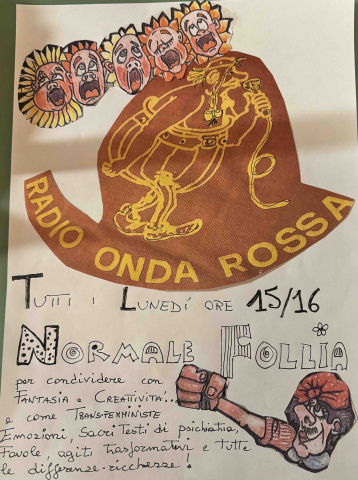 RADIO ONDA ROSSA
TUTTI I LUNEDÍ ORE 15/16
NORMALE FOLLIA
per condividere con
FANTASIA e CREATTIVITA...
e come TRANSFEMMINISTE
Emozioni, Sacri Testi di psichiatria,
Favole, agiti trasformativi e tutte
le differenze-ricchezze!